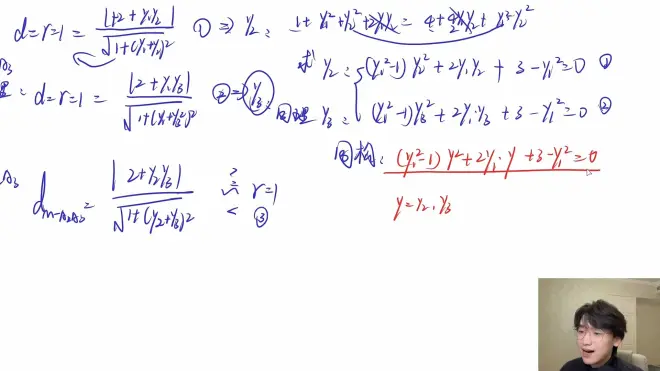 d=r=1= |2+y₁y₂| / √(1+(y₁+y₂)²) ① ⇒ y₂: 1+y₁²+y₂²+2y₁y₂=4+4y₁y₂+y₁²y₂²
求 y₂: (y₁²-1)y₂²+2y₁y₂+3-y₁²=0 ①
d=r=1= |2+y₁y₃| / √(1+(y₁+y₃)²) ②⇒ y₃ 同理 y₃: (y₁²-1)y₃²+2y₁y₃+3-y₁²=0 ②
同构: (y₁²-1)y²+2y₁·y+3-y₁²=0
A₃ |2+y₂y₃| / √(1+(y₂+y₃)²) ? < r=1 ③
y=y₂,y₃